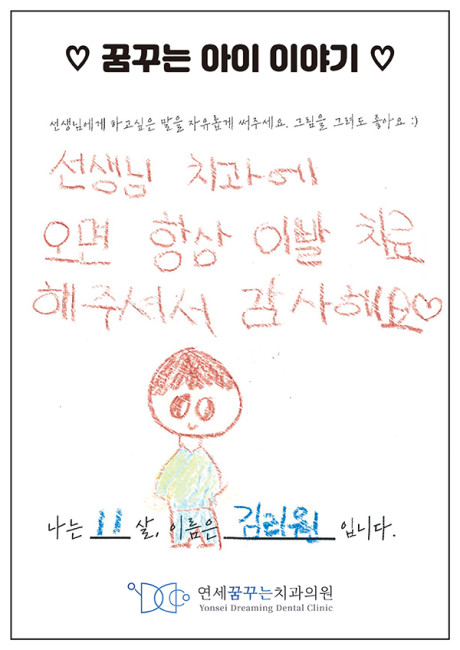 ♡ 꿈꾸는 아이 이야기 ♡
선생님에게 하고싶은 말을 자유롭게 써주세요. 그림을 그려도 좋아요 :)
선생님 치과에
오면 항상 이빨 치료
해주셔서 감사해요♡
나는 11 살, 이름은 김리원 입니다.
연세꿈꾸는치과의원
Yonsei Dreaming Dental Clinic